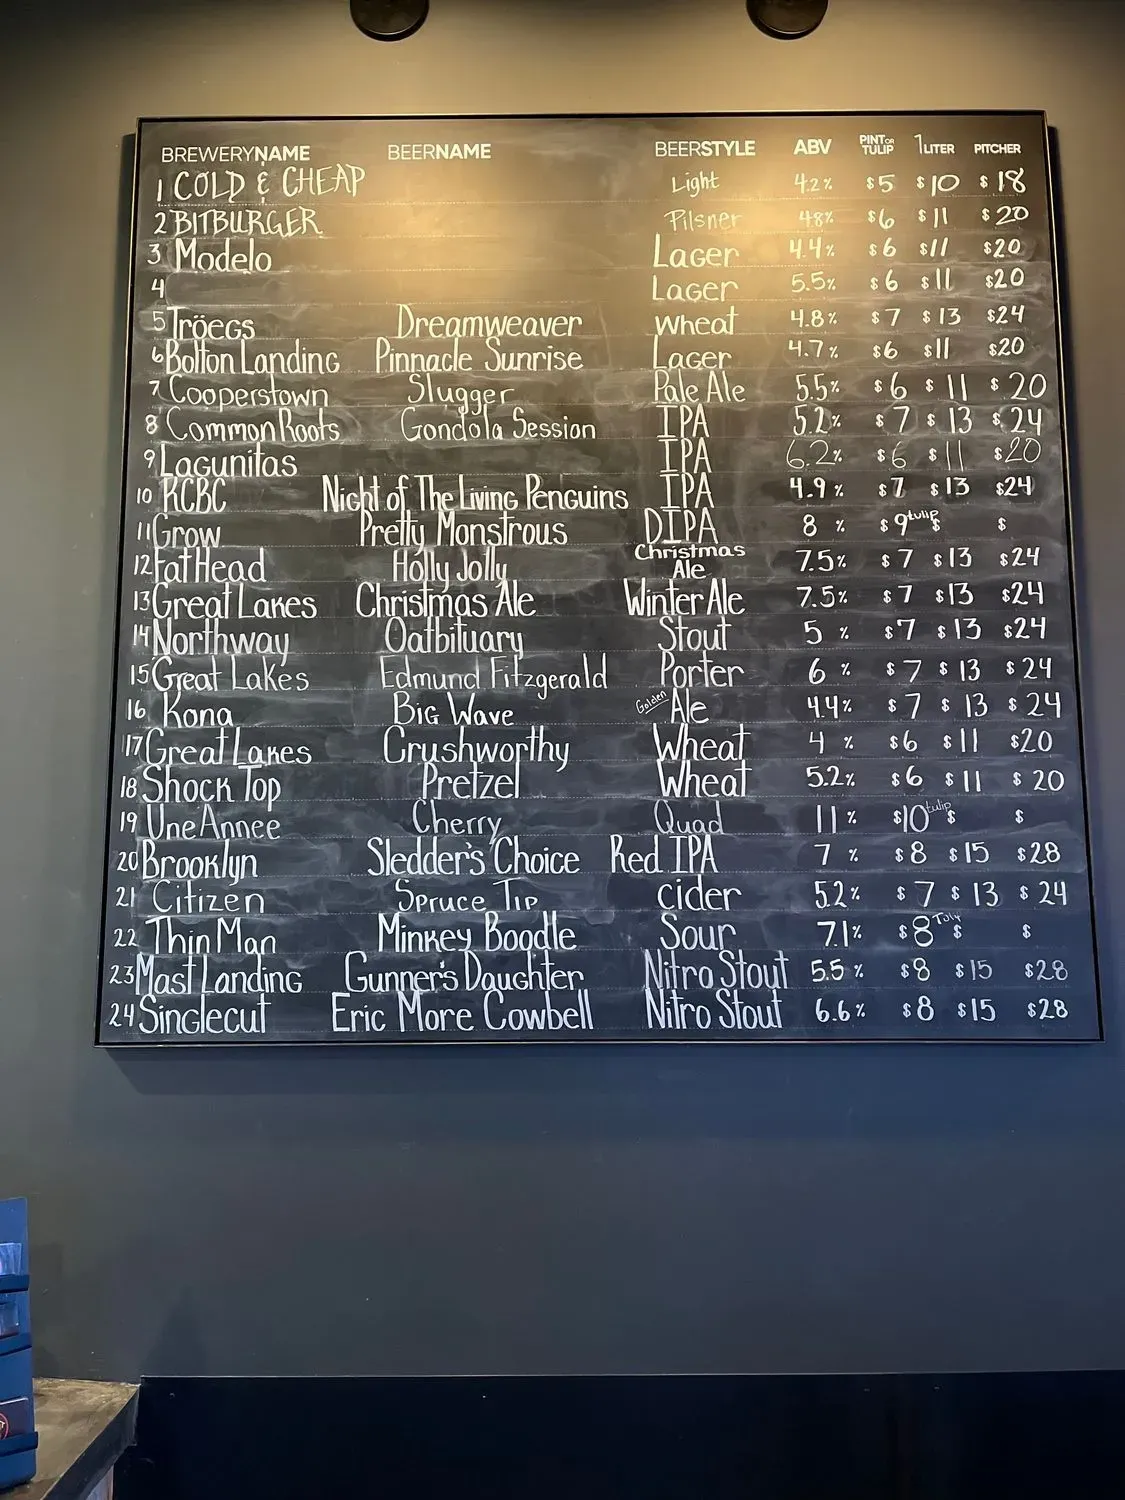 BREWERYNAME BEERNAME BEERSTYLE ABV PINT OR TULIP 1LITER PITCHER
1 COLD & CHEAP Light 4.2% $5 $10 $18
2 BITBURGER Pilsner 4.8% $6 $11 $20
3 Modelo Lager 4.4% $6 $11 $20
4 Lager 5.5% $6 $11 $20
5 Tröegs Dreamweaver Wheat 4.8% $7 $13 $24
6 Bolton Landing Pinnacle Sunrise Lager 4.7% $6 $11 $20
7 Cooperstown Slugger Pale Ale 5.5% $6 $11 $20
8 Common Roots Gondola Session IPA 5.2% $7 $13 $24
9 Lagunitas IPA 6.2% $6 $11 $20
10 KCBC Night of The Living Penguins IPA 4.9% $7 $13 $24
11 Grow Pretty Monstrous DIPA 8 % $9 tulip $ $
12 FatHead Holly Jolly Christmas Ale 7.5% $7 $13 $24
13 Great Lakes Christmas Ale Winter Ale 7.5% $7 $13 $24
14 Northway Oatbituary Stout 5 % $7 $13 $24
15 Great Lakes Edmund Fitzgerald Porter 6 % $7 $13 $24
16 Kona Big Wave Golden Ale 4.4% $7 $13 $24
17 Great Lakes Crushworthy Wheat 4 % $6 $11 $20
18 Shock Top Pretzel Wheat 5.2% $6 $11 $20
19 Une Annee Cherry Quad 11 % $10 tulip $ $
20 Brooklyn Sledder's Choice Red IPA 7 % $8 $15 $28
21 Citizen Spruce Tip cider 5.2% $7 $13 $24
22 Thin Man Minkey Boodle Sour 7.1% $8 $ $
23 Mast Landing Gunner's Daughter Nitro Stout 5.5 % $8 $15 $28
24 Singlecut Eric More Cowbell Nitro Stout 6.6% $8 $15 $28